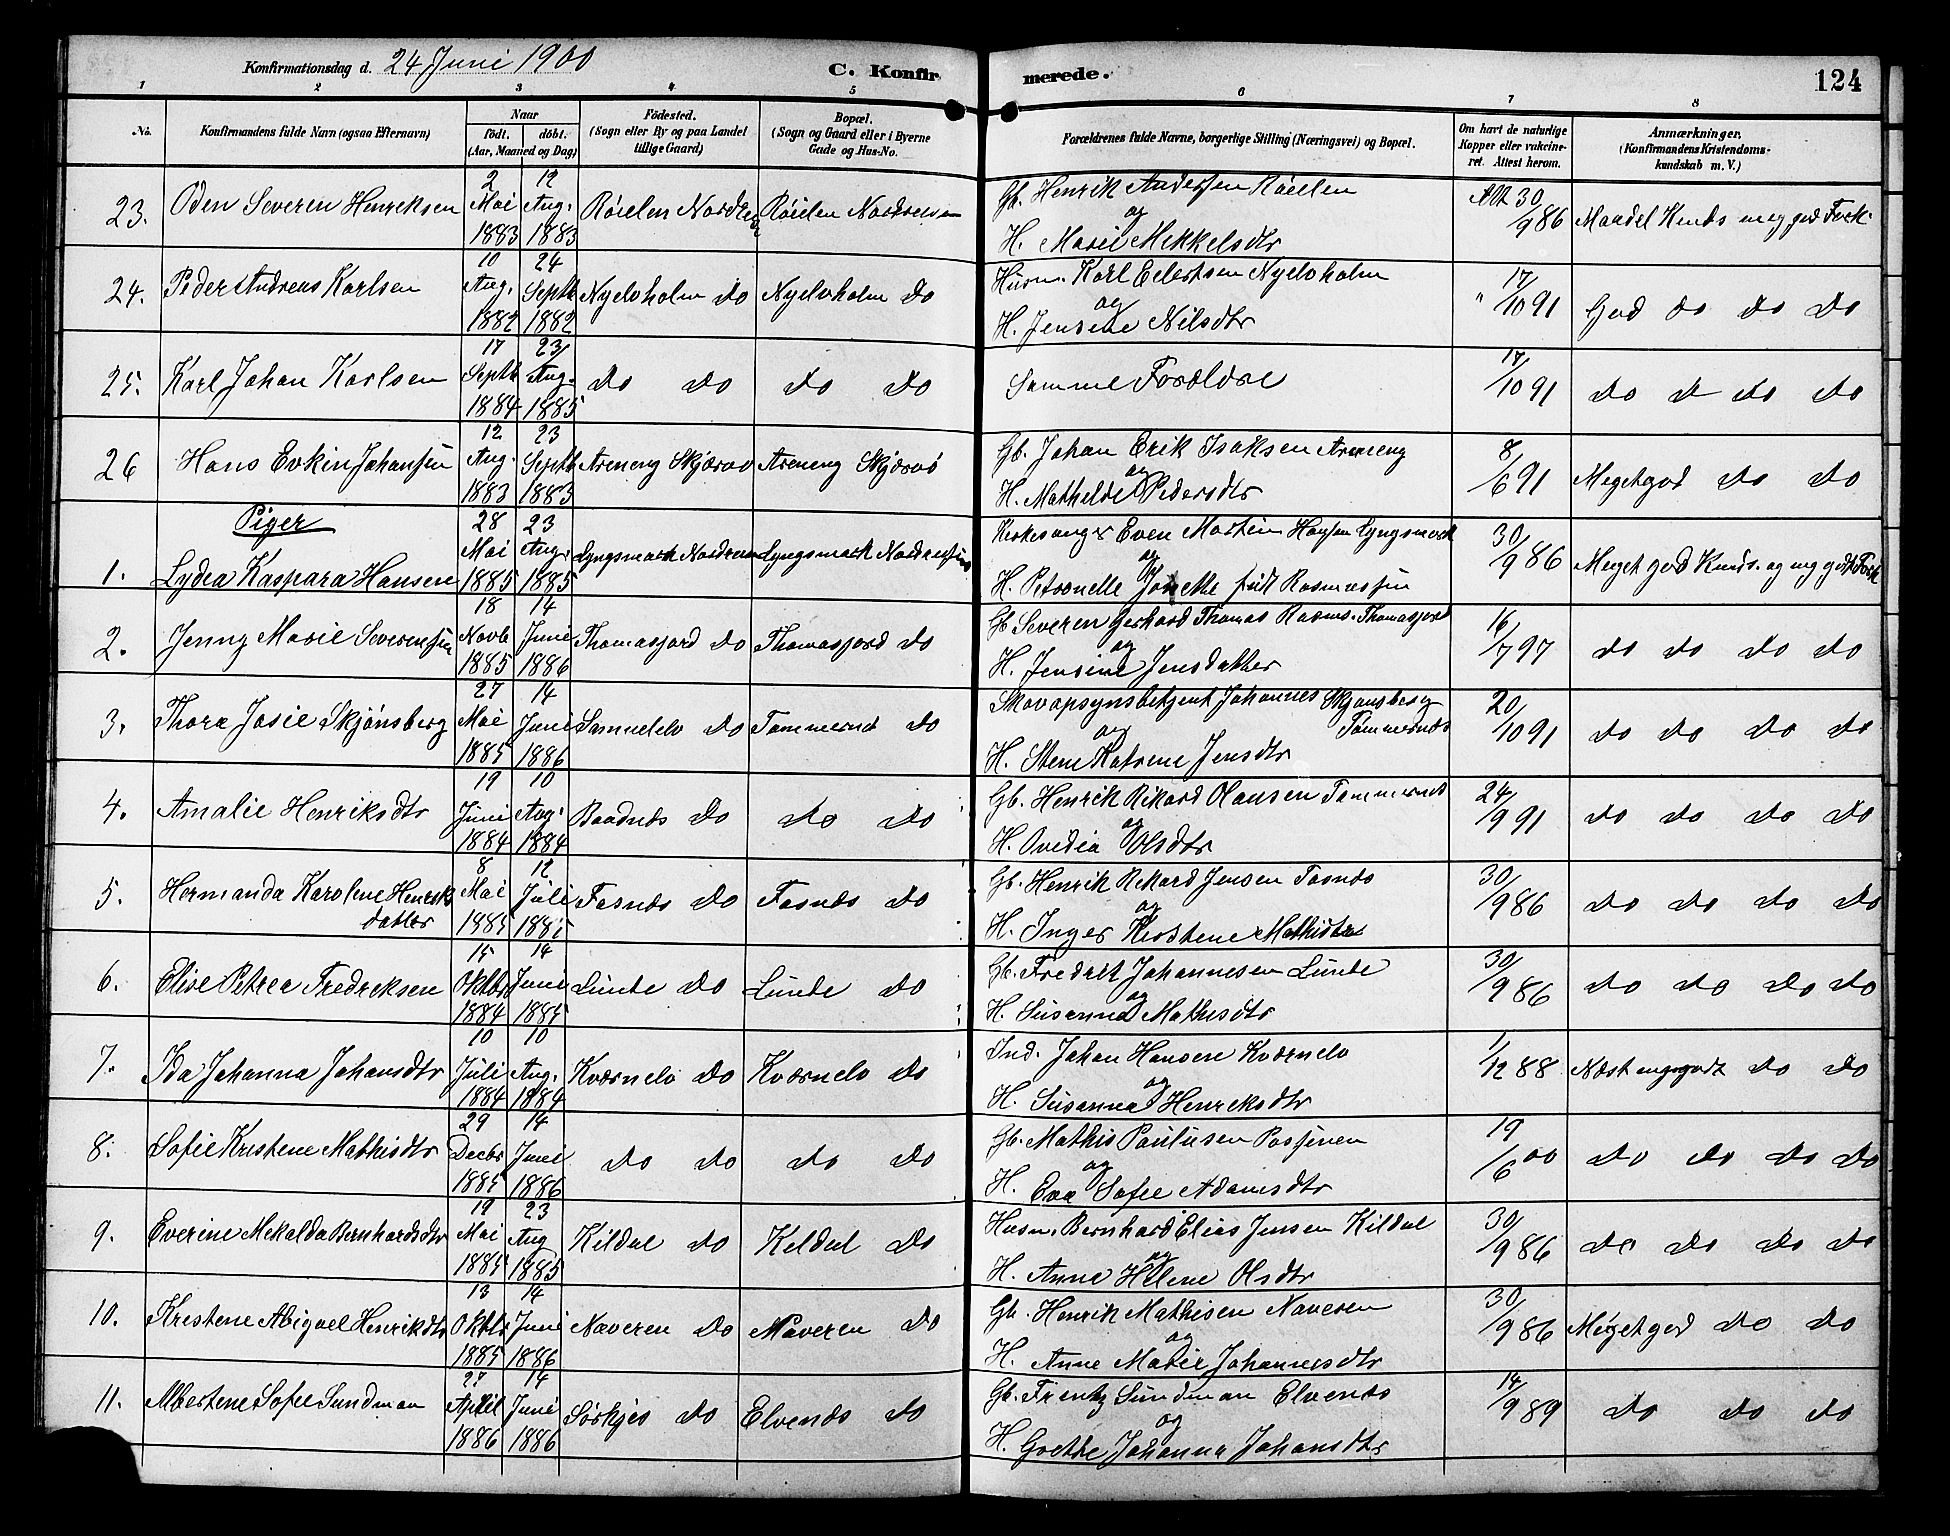 Konfirmationsdag d. 24 Juni 1900
C. Konfirmerede.
124
1 2 3 4 5 6 7 8
No.
Konfirmandens fulde Navn (ogsaa Efternavn)
Naar
födt. döbt.
(Aar, Maaned og Dag)
Födested.
(Sogn eller By og paa Landet
tillige Gaard)
Bopæl.
(Sogn og Gaard eller i Byerne
Gade og Hus-No.
Forældrenes fulde Navne, borgerlige Stilling (Næringsvei) og Bopæl.
Om havt de naturlige
Kopper eller vakcine-
ret. Attest herom.
Anmærkninger.
(Konfirmandens Kristendoms-
kundskab m. V.)
23. Oden Severen Henreksen 2 Mai 1883 12 Aug. 1883 Röielen Röielen Gb. Henrik Andersen Röielen og H. Marie Mekkelsdtr Att 30/9 86 Maadel Kunds meg god
24. Peder Andreas Karlsen 10 Aug. 1882 24 Septb 1882 Nyelvholm do Nyelvholm do Husm. Karl Nyelvholm og H. Jensine Nilsdtr " 17/10 91 God do do do
25. Karl Johan Karlsen 17 Septb 1884 23/ Aug. 1885 do do do do Samme Forældre 17/10 91 do do do do
26 Hans Johansen 12 Aug. 1883 23 Septb 1883 Skjærvö Skjærvö Gb. Johan Erik Isaksen og H. Mathelde Pedersdtr 8/6 91 Meget god do do
Piger
1. Lydea Kaspara Hansen 28 Mai 1885 23 Aug. 1885 Lyngsmark Lyngsmark Kirkesanger Even Martin Hansen Lyngsmark og H. Petronelle født Rasmussen 30/9 86 Meget god Kunds. og meg godt
2. Jenny Marie Severensen 18 Novb 1885 14 Juni 1886 Thomasjord do Thomasjord do Gb Severen Gerhard Thomas Rasms. Thomasjord og H. Jensine Jensdatter 16/7 97 do do do do
3. Thora Josie Skjönsberg 27 Mai 1885 14 Juni 1886 Samuelelv do do Skovopsynsbetjent Johannes Skjönsberg
og H. Stene Katrene Jensdtr 20/10 91 do do do do
4. Amalie Henriksdtr 19 Juni 1884 10 Aug. 1884 Baadnes do do do Gb. Henrik Rikard Olausen og H. Ovedia Olsdtr 24/9 91 do do do do
5. Hermanda Karolene Henreks
datter 8 Mai 1885 12 Juli 1885 do do Gb. Henrik Rekard Jensen og H. Inger Kerstene 30/9 86 do do do do
6. Elise Petrea Fredreksen 15 Oktbr 1884 14 Juni 1885 Lunde do Lunde do Gb. Fredrik Johannesen Lunde og H. Susanna Mathisdtr 30/9 86 do do do do
7. Ida Johanna Johansdtr 10 Juli 1884 10 Aug. 1884 Kværnelv do Kværnelv do Ind. Johan Hansen Kværnelv og H. Susanna Henreksdtr 1/12 88 do do
8. Sofie Kristene Mathisdtr 29 Decbr 1885 14 Juni 1886 do do do do Gb. Mathis Paulusen og H. Eva Sofie Adamsdtr 19/6 00 do do do do
9. Everine Mekalda Bernhardsdtr 19 Mai 1885 23 Aug 1885 Kildal do Keldal do Husm. Bernhard Elias Jensen Kildal og H. Anne Helene Olsdtr 30/9 86 do do do do
10. Kristene Abigael Henriksdtr 13 Oktbr 1885 14 Juni 1886 Naveren do Naveren do Gb. Henrik Mathisen Naveren og H. Anne Marie Johannesdtr 30/9 86 Meget god do do
11. Albertene Sofie Sundman 27 April 1886 14 Juni 1886 Sörkjos do Elvenes do Gb. Frentz Sundman Elvenes og H. Grethe Johanna Johansdtr 14/9 89 do do do